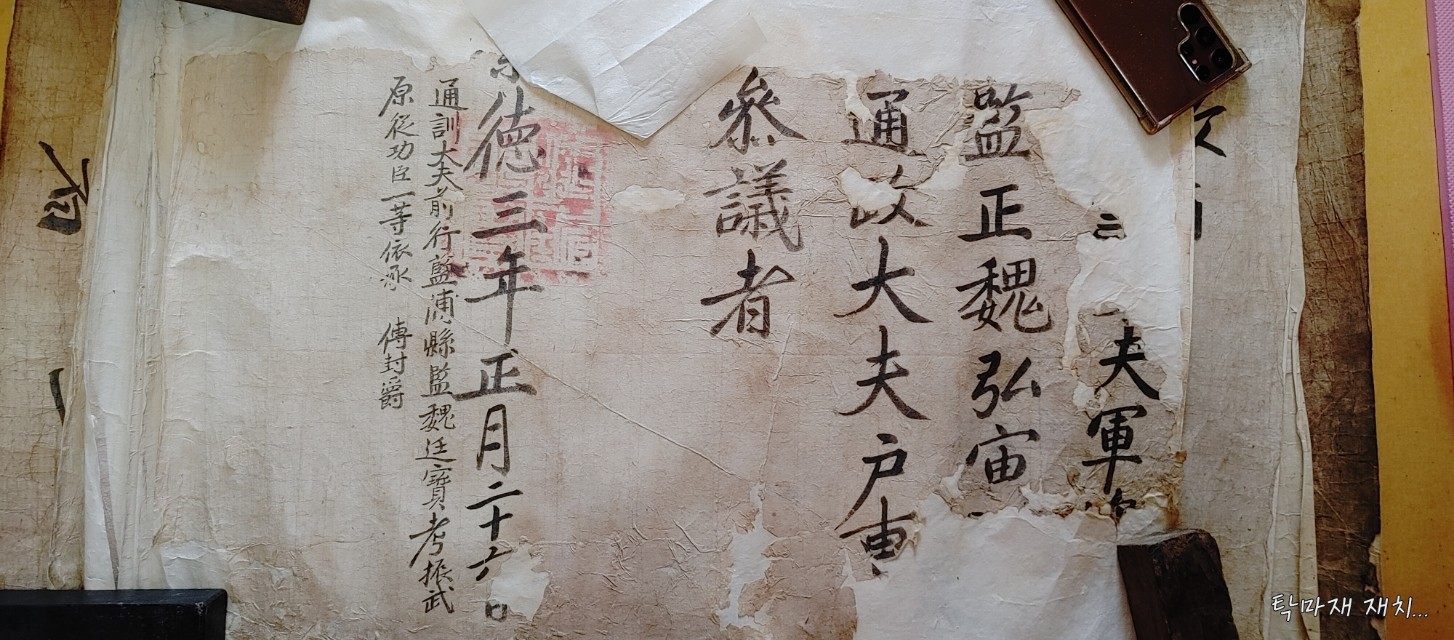 夫軍
監正魏弘宙
通政大夫戶
參議者
德三年正月二十六日
通訓大夫前行藍浦縣監魏廷寶考振武
原從功臣一等依承 傳封爵
탁마재 재치...